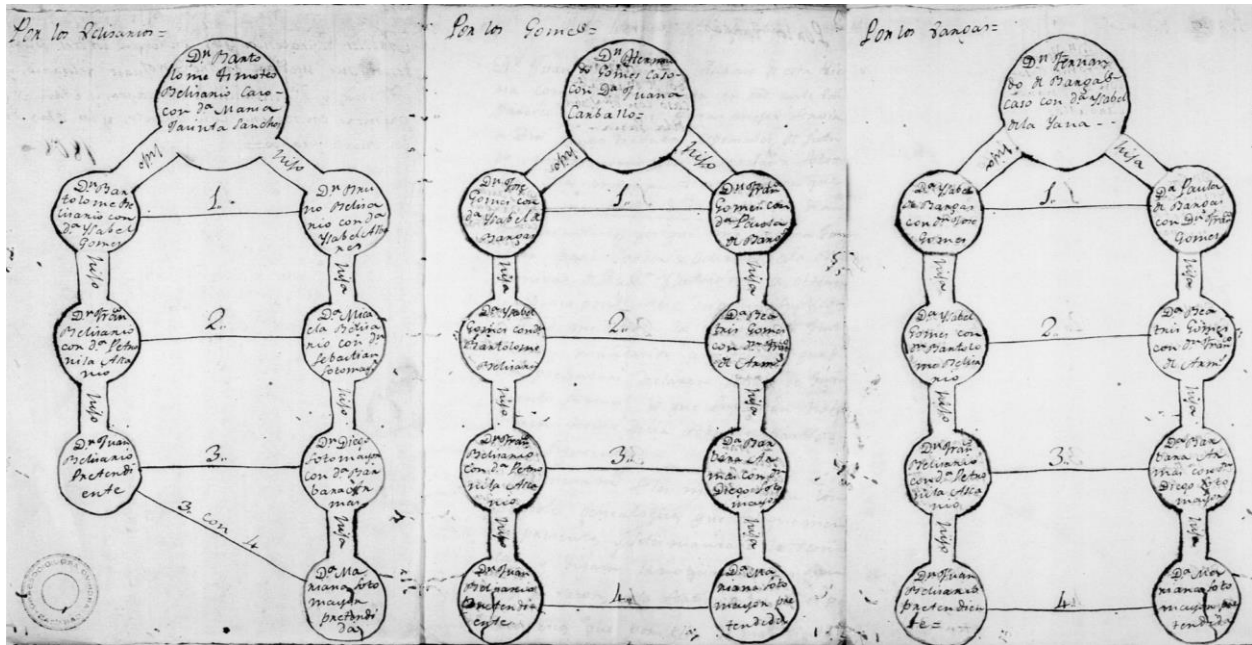 Por los Belisarios=
Dn. Barto
lome Timoteo
Belisario Caso
con da. Maria
Jacinta Sancho
hijo
hijo
Dn. Bar
tolome Be
lisario con
da. Ysabel
Gomes
1..
Dn. Bru
no Belisa
rio con da.
Ysabel
hijo
hija
Dn. Fran
Belisario
con da. Petro
nila Asca
nio
2..
Da. Mica
ela Belisa
rio con dn.
Sebastian
Sotomaior
hijo
hijo
Dn. Juan
Belisario
Pretendi
ente
3..
Dn. Diego
Sotomayor
con da. Bar
bara Ar
mas
3 con 4
hija
Da. Ma
riana Soto
mayor
pretendi
da
Por los Gomes=
Dn. Hernan
do Gomes Caso
con da. Juana
Carballo=
hijo
hijo
Dn. Jose
Gomes con
da. Ysabel de
Bargas
1..
Dn. Fran
Gomes con
da. Paula
de Bargas
hija
hija
Da. Ysabel
Gomes con dn.
Bartolome
Belisario
2..
Da. Bea
tris Gomes
con dn. Fran
de Arms
hijo
hija
Dn. Fran
Belisario
con da. Petro
nila Asca
nio
3..
Da. Bar
bara Ar
mas con dn.
Diego Soto
mayor
hijo
hija
Dn. Juan
Belisario
Pretendi
ente
4..
Da. Ma
riana Soto
mayor pre
tendida
Por los Bargas=
Dn. Fernan
do de Bargas
Caso con da. Ysabel
de la
hija
hija
Da. Ysabel
de Bargas
con dn. Jose
Gomes
1..
Da. Paula
de Bargas
con Dn. Fran
Gomes
hija
hija
Da. Ysabel
Gomes con
dn. Bartolo
me Belisa
rio
2..
Da. Bea
tris Gomes
con dn. Franco
de Arms
hijo
hija
Dn. Fran
Belisario
con da. Petro
nila Asca
nio
3..
Da. Bar
bara Ar
mas con dn.
Diego Soto
mayor
hijo
hija
Dn. Juan
Belisario
pretendien
te=
4..
Da. Ma
riana Soto
mayor pre
tendida